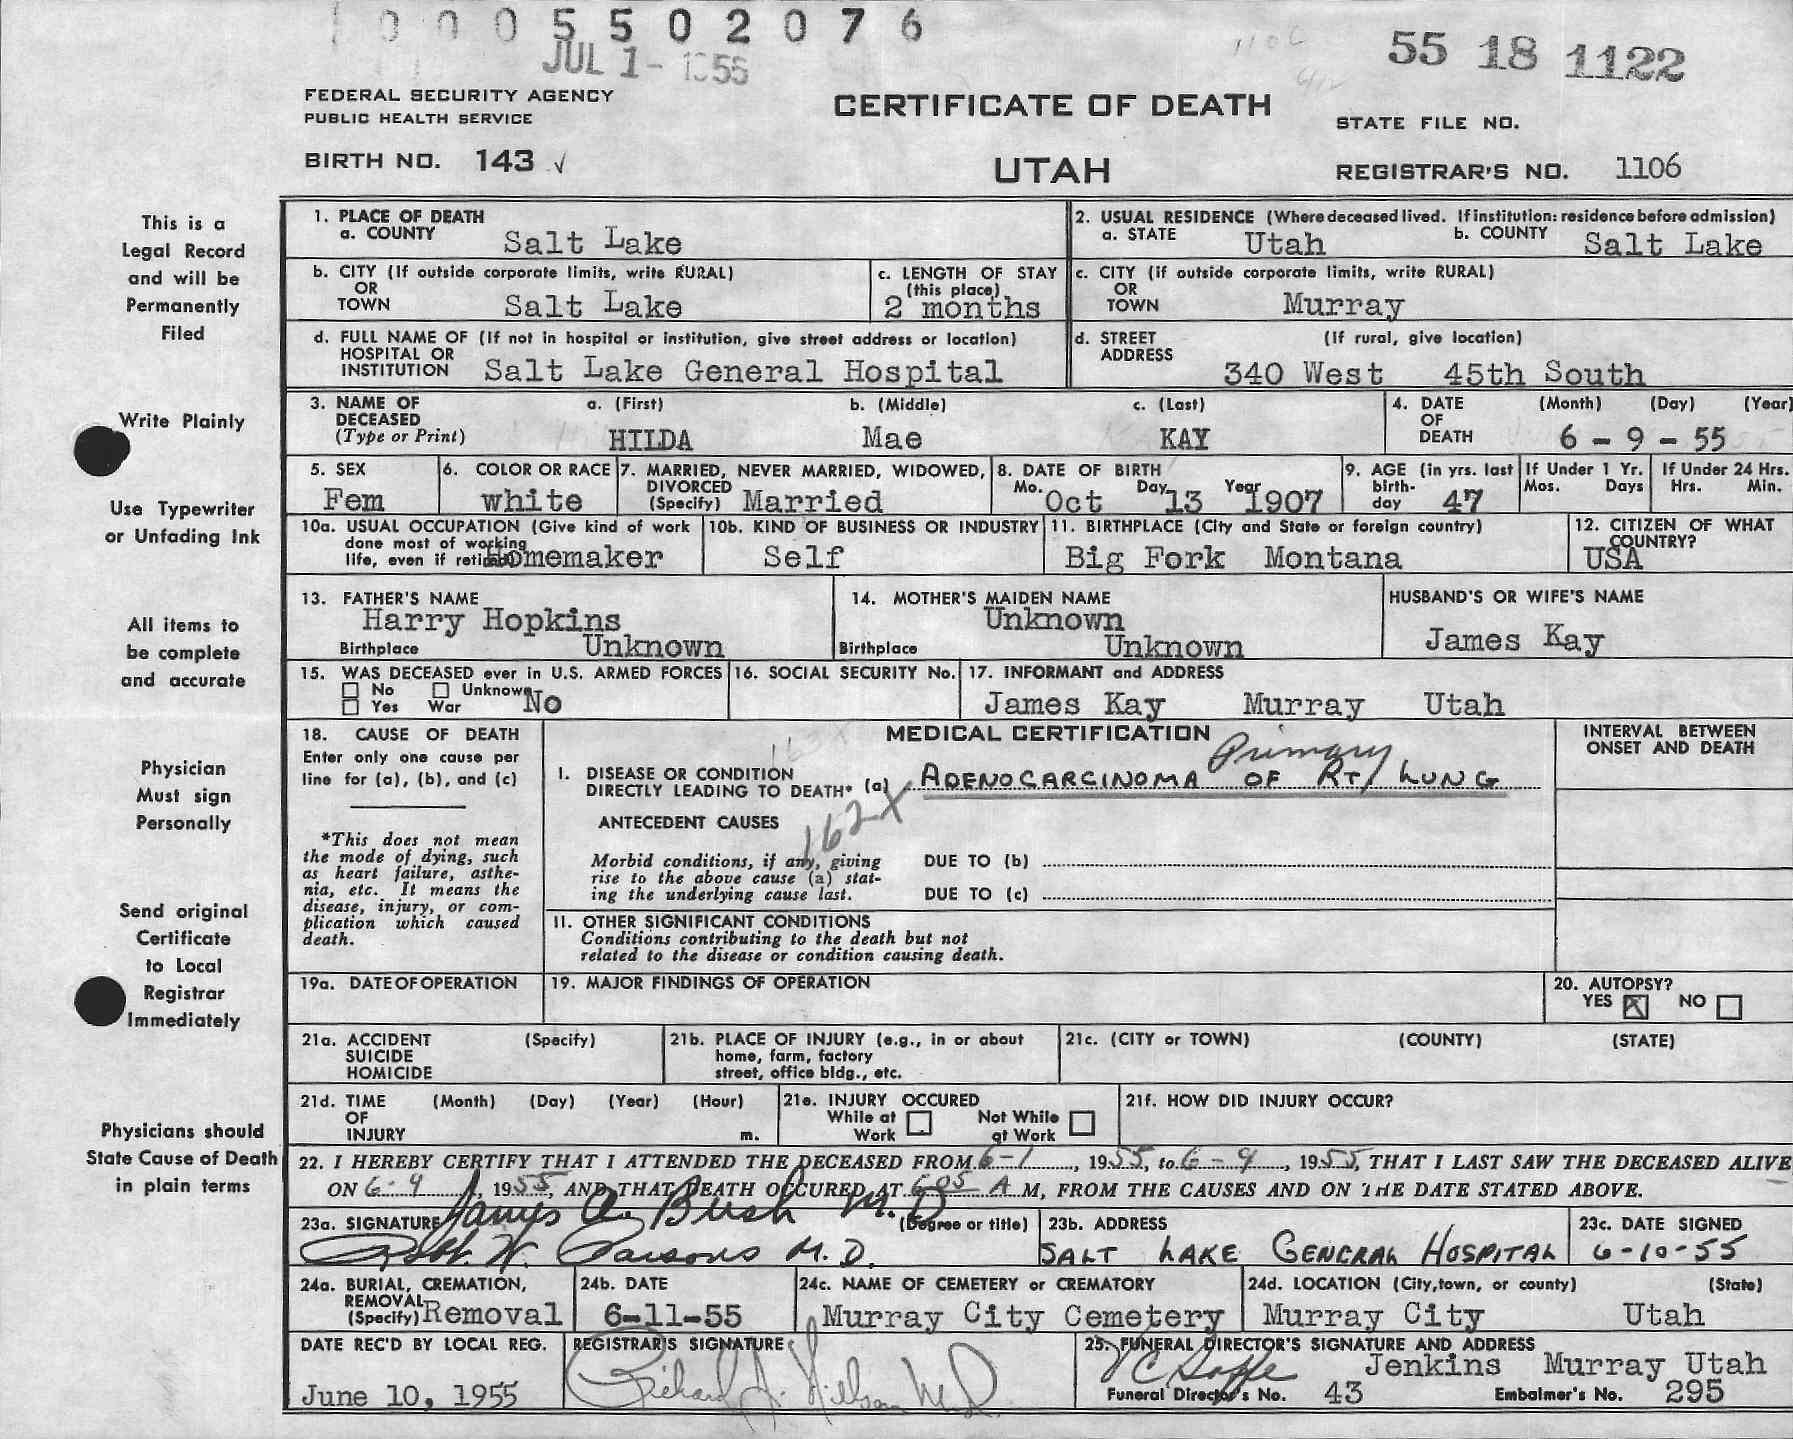 0005502076
JUL 1 - 1955
55 18 1122
FEDERAL SECURITY AGENCY
PUBLIC HEALTH SERVICE
CERTIFICATE OF DEATH
STATE FILE NO.
BIRTH NO. 143 √
UTAH
REGISTRAR'S NO. 1106
This is a
Legal Record
and will be
Permanently
Filed
Write Plainly
Use Typewriter
or Unfading Ink
All items to
be complete
and accurate
Physician
Must sign
Personally
Send original
Certificate
to Local
Registrar
Immediately
Physicians should
State Cause of Death
in plain terms
1. PLACE OF DEATH
a. COUNTY Salt Lake
2. USUAL RESIDENCE (Where deceased lived. If institution: residence before admission)
a. STATE Utah b. COUNTY Salt Lake
b. CITY (If outside corporate limits, write RURAL)
OR
TOWN Salt Lake
c. LENGTH OF STAY
(this place)
2 months
c. CITY (if outside corporate limits, write RURAL)
OR
TOWN Murray
d. FULL NAME OF (If not in hospital or institution, give street address or location)
HOSPITAL OR
INSTITUTION Salt Lake General Hospital
d. STREET (If rural, give location)
ADDRESS
340 West 45th South
3. NAME OF DECEASED (Type or Print)
a. (First) b. (Middle) c. (Last)
HILDA Mae KAY
4. DATE OF DEATH (Month) (Day) (Year)
6 - 9 - 55
5. SEX
Fem
6. COLOR OR RACE
white
7. MARRIED, NEVER MARRIED, WIDOWED,
DIVORCED
(Specify) Married
8. DATE OF BIRTH
Mo. Oct Day 13 Year 1907
9. AGE (in yrs. last
birth-
day 47
If Under 1 Yr.
Mos. Days
If Under 24 Hrs.
Hrs. Min.
10a. USUAL OCCUPATION (Give kind of work
done most of working
life, even if retired) Homemaker
10b. KIND OF BUSINESS OR INDUSTRY
Self
11. BIRTHPLACE (City and State or foreign country)
Big Fork Montana
12. CITIZEN OF WHAT
COUNTRY?
USA
13. FATHER'S NAME
Harry Hopkins
Birthplace Unknown
14. MOTHER'S MAIDEN NAME
Unknown
Birthplace Unknown
HUSBAND'S OR WIFE'S NAME
James Kay
15. WAS DECEASED ever in U.S. ARMED FORCES
No Unknown No
Yes War
16. SOCIAL SECURITY No.
17. INFORMANT and ADDRESS
James Kay Murray Utah
18. CAUSE OF DEATH
Enter only one cause per
line for (a), (b), and (c)
*This does not mean
the mode of dying, such
as heart failure, asthe-
nia, etc. It means the
disease, injury, or com-
plication which caused
death.
MEDICAL CERTIFICATION
INTERVAL BETWEEN
ONSET AND DEATH
Primary
I. DISEASE OR CONDITION
DIRECTLY LEADING TO DEATH* (a) ADENOCARCINOMA OF RT/ LUNG
162X
ANTECEDENT CAUSES
Morbid conditions, if any, giving
rise to the above cause (a) stat-
ing the underlying cause last.
DUE TO (b)
DUE TO (c)
II. OTHER SIGNIFICANT CONDITIONS
Conditions contributing to the death but not
related to the disease or condition causing death.
19a. DATE OF OPERATION
19. MAJOR FINDINGS OF OPERATION
20. AUTOPSY?
YES X NO
21a. ACCIDENT (Specify)
SUICIDE
HOMICIDE
21b. PLACE OF INJURY (e.g., in or about
home, farm, factory
street, office bldg., etc.
21c. (CITY or TOWN) (COUNTY) (STATE)
21d. TIME (Month) (Day) (Year) (Hour)
OF
INJURY m.
21e. INJURY OCCURED
While at Work
Not While at Work
21f. HOW DID INJURY OCCUR?
22. I HEREBY CERTIFY THAT I ATTENDED THE DECEASED FROM 6-1, 1955, to 6-9, 1955, THAT I LAST SAW THE DECEASED ALIVE
ON 6-9, 1955, AND THAT DEATH OCCURED AT 605 A M, FROM THE CAUSES AND ON THE DATE STATED ABOVE.
James A. Bush M.D
23a. SIGNATURE (Degree or title)
Robt. W. Parsons M.D.
23b. ADDRESS
SALT LAKE GENERAL HOSPITAL
23c. DATE SIGNED
6-10-55
24a. BURIAL, CREMATION,
REMOVAL
(Specify) Removal
24b. DATE
6-11-55
24c. NAME OF CEMETERY or CREMATORY
Murray City Cemetery
24d. LOCATION (City, town, or county) (State)
Murray City Utah
DATE REC'D BY LOCAL REG.
June 10, 1955
REGISTRAR'S SIGNATURE
Richard
25. FUNERAL DIRECTOR'S SIGNATURE AND ADDRESS
Jenkins Murray Utah
Funeral Director's No. 43 Embalmer's No. 295